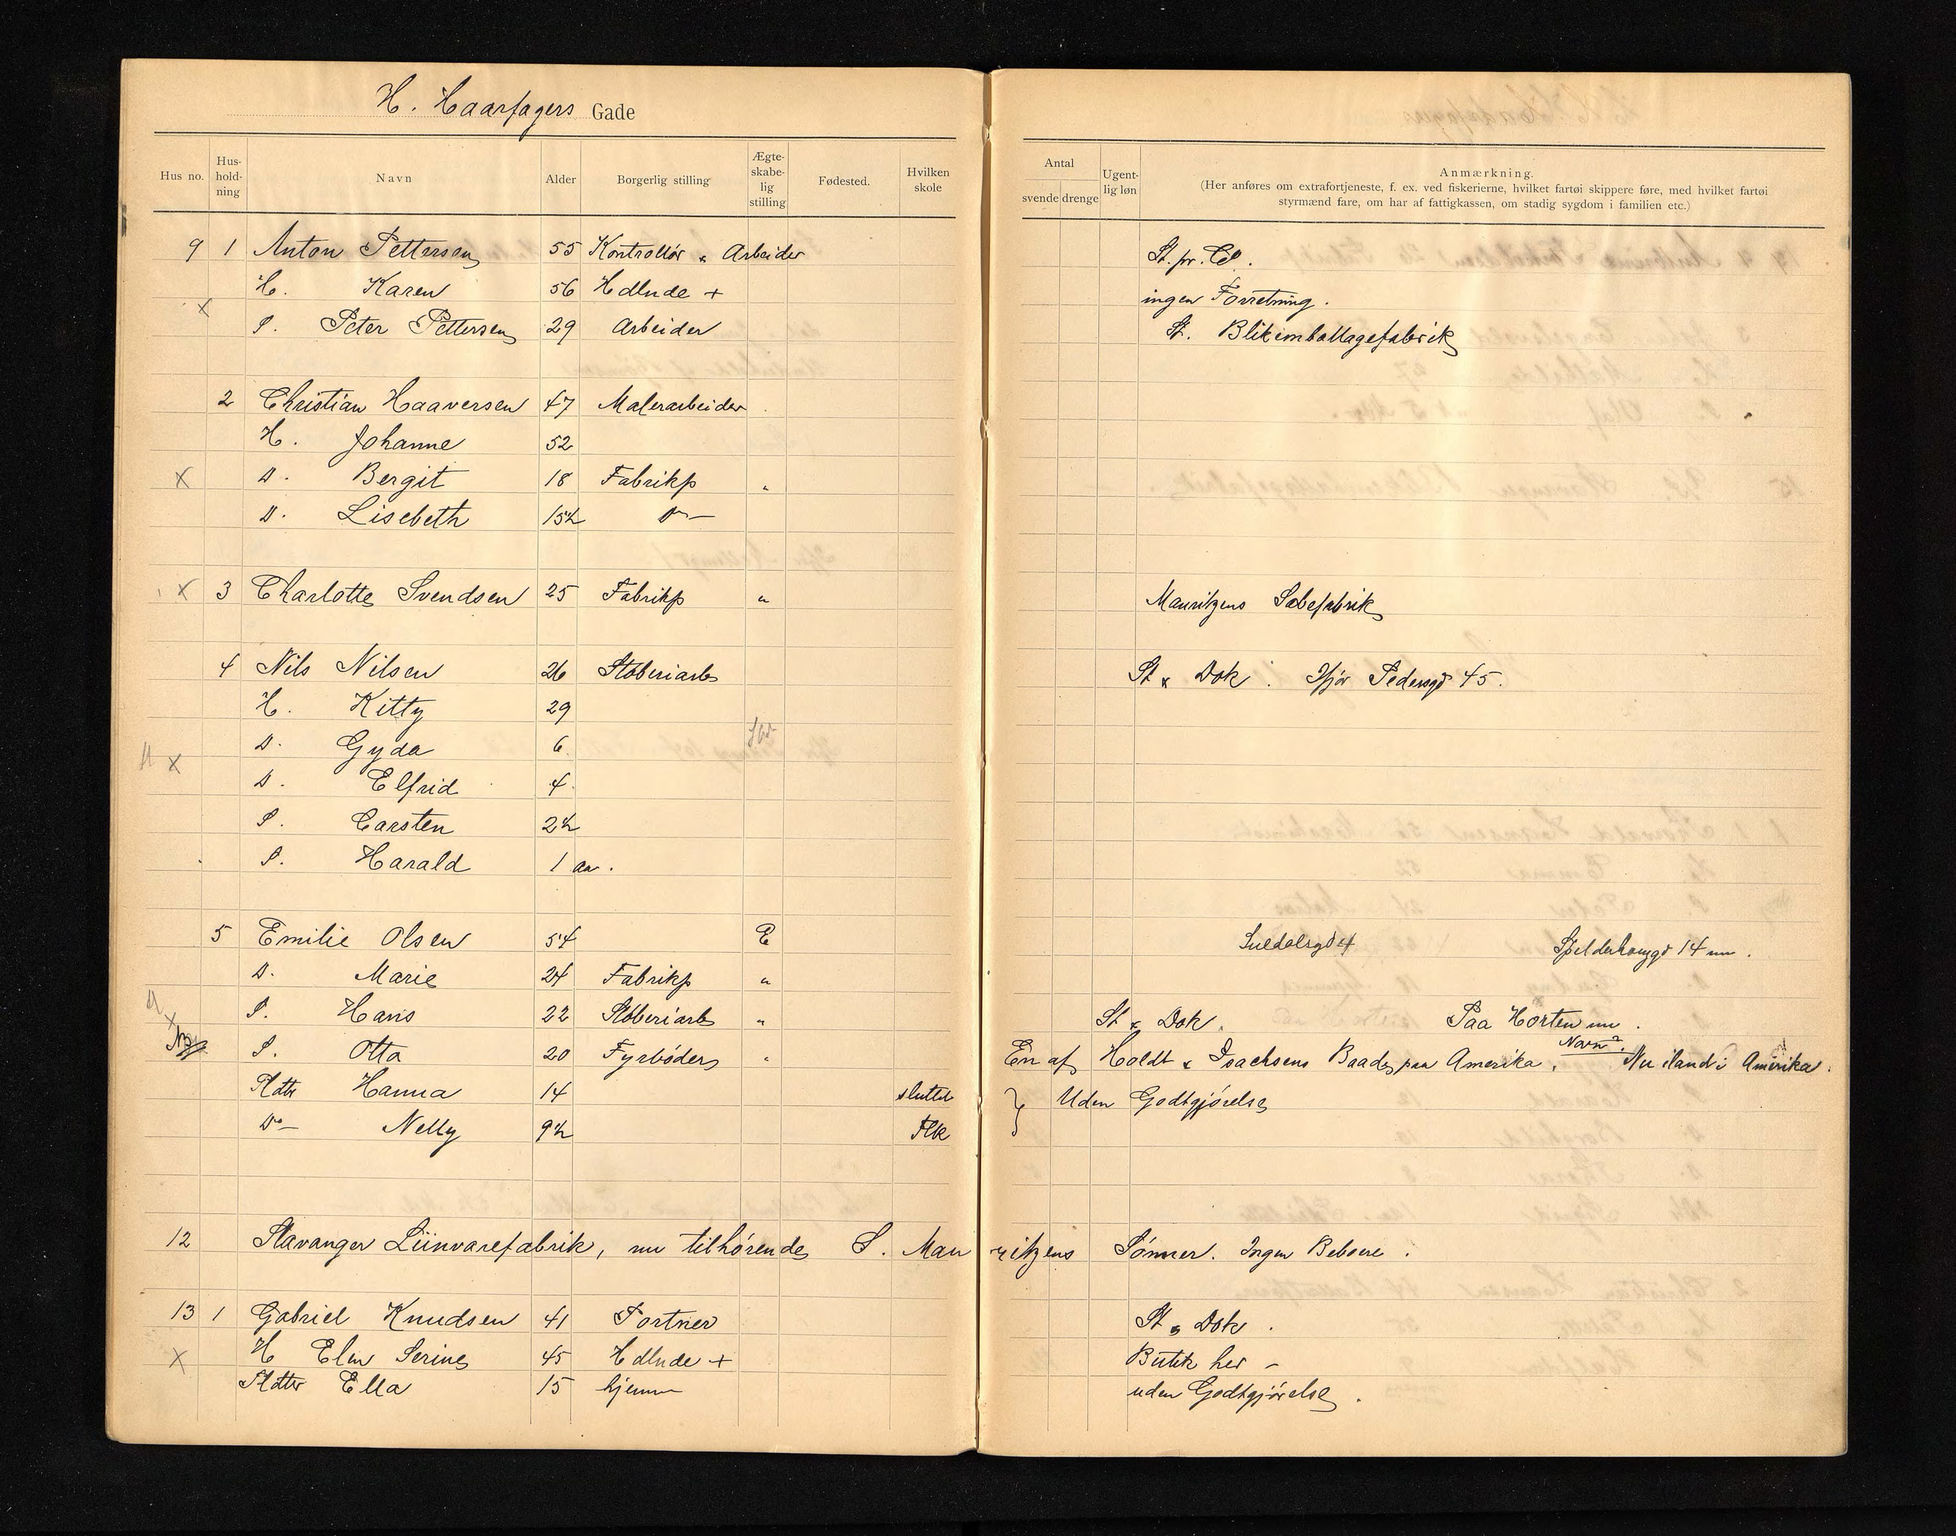 H. Haarfagers Gade
Hus no. Hus-hold-ning Navn Alder Borgerlig stilling Ægte-skabe-lig stilling Fødested. Hvilken skole
Antal svende drenge Ugent-lig løn Anmærkning.
(Her anføres om extrafortjeneste, f. ex. ved fiskerierne, hvilket fartøi skippere føre, med hvilket fartøi
styrmænd fare, om har af fattigkassen, om stadig sygdom i familien etc.)
9 1 Anton Pettersen 55 Kontrollør & Arbeider St. pr. El.
H. Karen 56 Hdlnde + ingen Forretning.
x S. Peter Pettersen 29 Arbeider St. Blikemballagefabrik
2 Christian Haaversen 47 Malerarbeider
H. Johanne 52
x D. Bergit 18 Fabrikp "
D. Lisebeth 15½ Do—
x 3 Charlotte Svendsen 25 Fabrikp " Mauritzens Sæbefabrik
4 Nils Nilsen 26 Støberiarb St & Dok. Ifjør Pedersgd 45.
H. Kitty 29
D. Gyda 6
x D. Elfrid 4
S. Carsten 2½
S. Harald 1 aar.
5 Emilie Olsen 54 E Suldalsgd 4 Spilderhauggd 14 nu.
D. Marie 24 Fabrikp "
x S. Hans 22 Støberiarb " St & Dok. Paa Horten nu.
S. Otto 20 Fyrbøder " En af Holdt & Isachsens Baade paa Amerika. Navn? Nu iland i Amerika.
Pldtr Hanna 14 sluttet } Uden Godtgjørelse
Do— Nelly 9½ Flk
12 Stavanger Liinvarefabrik, nu tilhørende S. Mauritzens Sønner. Ingen Beboere.
13 1 Gabriel Knudsen 41 Portner St & Dok.
x H Elen Serine 45 Hdlnde + Butik her –
Pldtter Ella 15 hjemme uden Godtgjørelse.